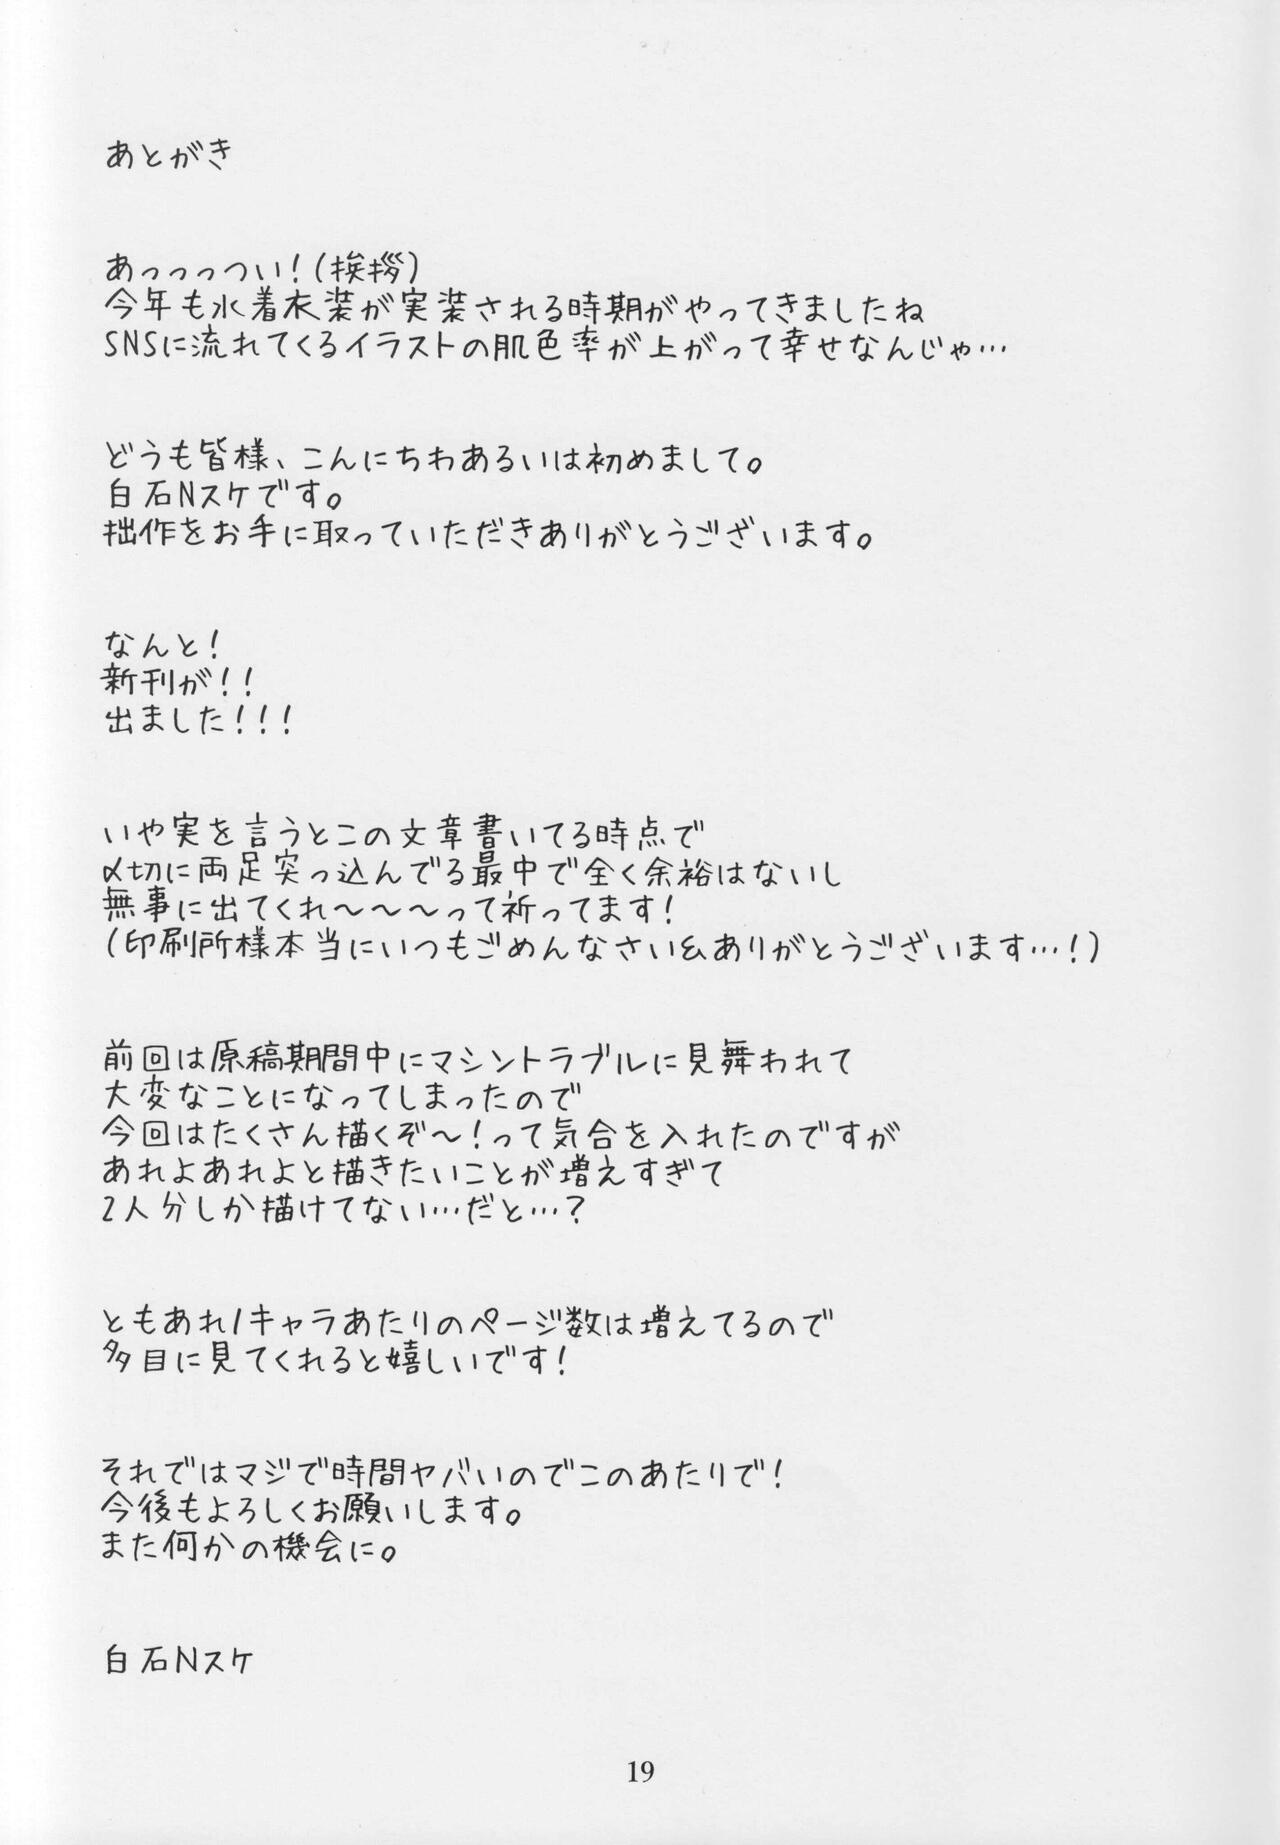 あとがき
あっっっつい!(挨拶)
今年も水着衣装が実装される時期がやってきましたね
SNSに流れてくるイラストの肌色率が上がって幸せなんじゃ…
どうも皆様、こんにちわあるいは初めまして。
白石Nスケです。
拙作をお手に取っていただきありがとうございます。
なんと!
新刊が!!
出ました!!!
いや実を言うとこの文章書いてる時点で
〆切に両足突っ込んでる最中で全く余裕はないし
無事に出てくれ〜〜〜って祈ってます!
(印刷所様本当にいつもごめんなさい&ありがとうございます…!)
前回は原稿期間中にマシントラブルに見舞われて
大変なことになってしまったので
今回はたくさん描くぞ〜!って気合を入れたのですが
あれよあれよと描きたいことが増えすぎて
2人分しか描けてない…だと…?
ともあれ1キャラあたりのページ数は増えてるので
多目に見てくれると嬉しいです!
それではマジで時間ヤバいのでこのあたりで!
今後もよろしくお願いします。
また何かの機会に。
白石Nスケ
19